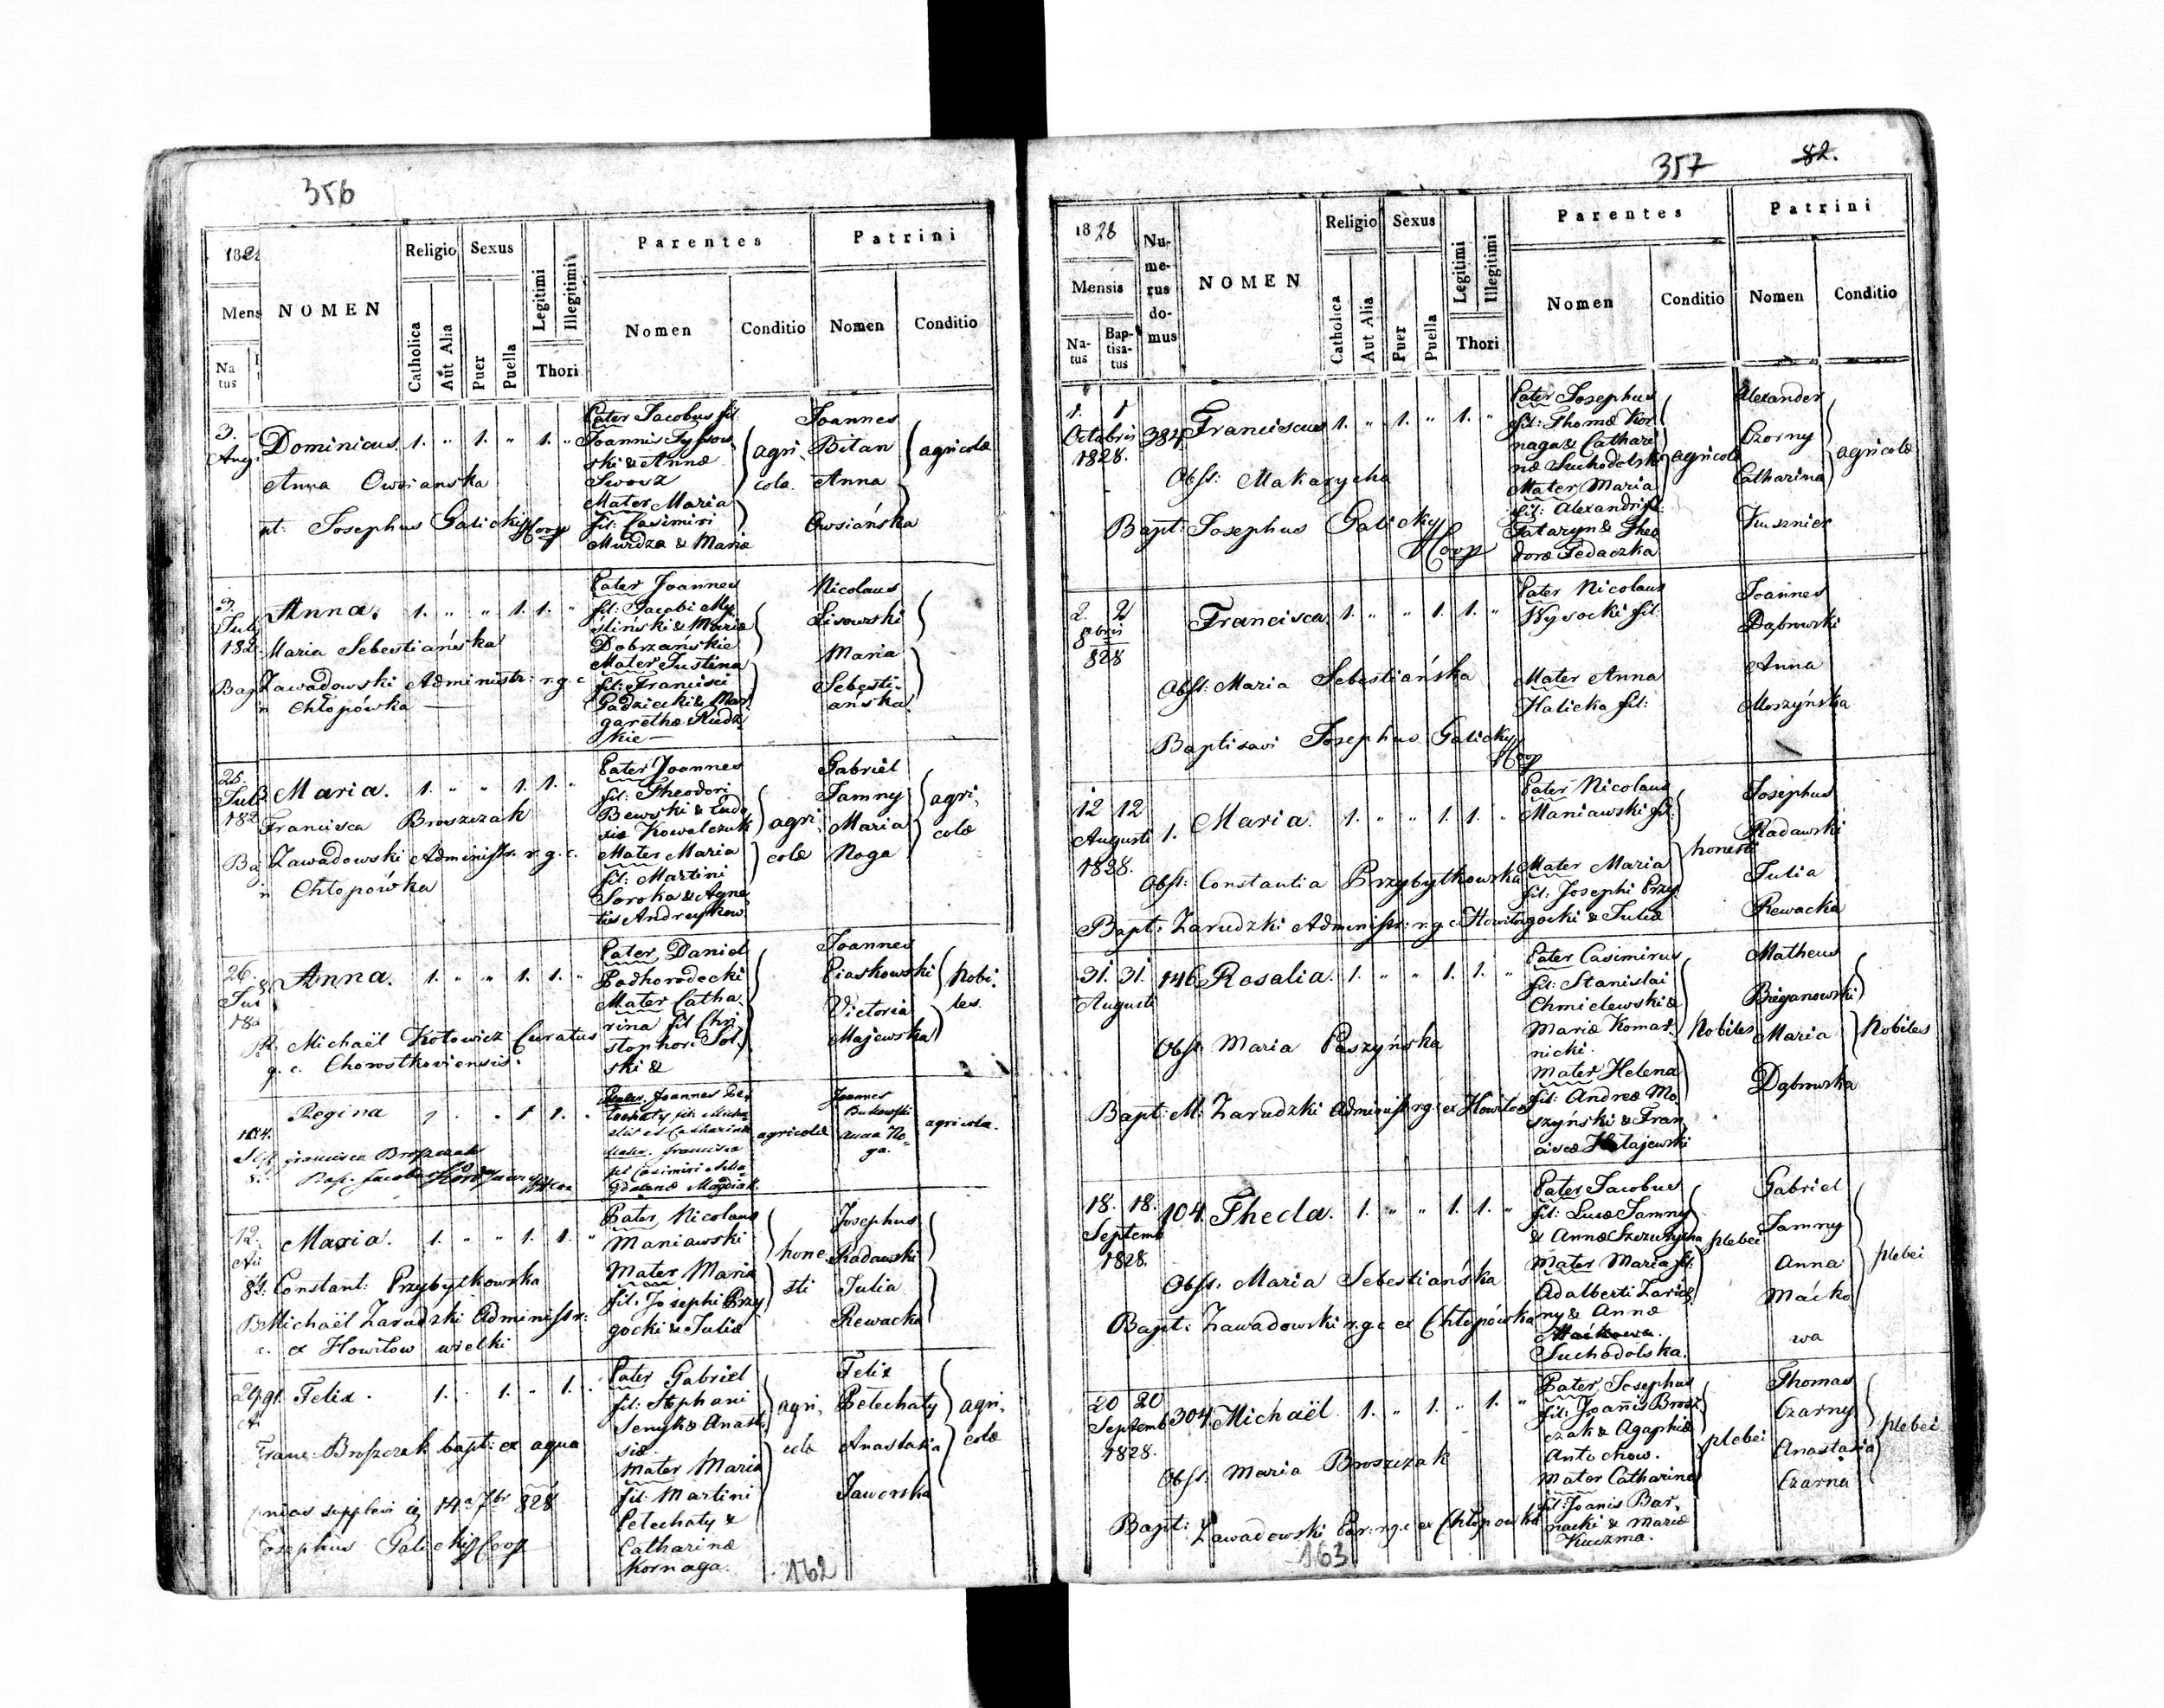 356
Mens
NOMEN
Religio
Sexus
Legitimi
Illegitimi
Parentes
Patrini
Na
tus
Catholica
Aut Alia
Puer
Puella
Thori
Nomen
Conditio
Nomen
Conditio
3.
Dominicus. 1. " 1. " 1. "
Anna Owsianska
Josephus Galicky Coop
Pater Jacobus fil.
Joannis
ski & Annæ
Mater Maria
fil: Casimiri
Murdza & Mariæ
agri
cola.
Joannes
Bitan
Anna
Owsiańska
agricolæ
3.
July
Anna. 1. " " 1. 1. "
Maria Sebestiańska
Zawadowski Administr: r. g. c
Chłopówka
Pater Joannes
fil: Jacobi My
śliński & Mariæ
Dobrzańskie
Mater Justina
fil: Francisci
Gadzicki & Mar
garethæ Rudz
kie
Nicolaus
Lisowski
Maria
Sebesti-
ańska
25.
Maria. 1. " " 1. 1. "
Francisca Broszczak
Zawadowski Administr. r. g. c.
Chłopówka
Pater Joannes
fil: Theodori
Bewski & Eudo
xiæ Kowalczuk
Mater Maria
fil: Martini
Soroka & Agne
tis Andreykow
agri
colæ
Gabriel
Tamny
Maria
Noga
agri,
colæ
26.
Anna. 1. " " 1. 1. "
Michaël Kotowicz Curatus
g. c. Chorostkoviensis.
Pater Daniel
Podhorodecki
Mater Catha
rina fil Chri
stophori Sol
ski &
Joannes
Piaskowski
Victoria
Majewska
Nobi
les.
Regina
Francisca Broszczak
Pater Joannes Pe
Mater Francisca
fil Casimiri
agricolæ
Joannes
Bukowski
Anna No-
ga.
agricola.
12.
Maria. 1. " " 1. 1. "
Constant: Przybytkowska
Michaël Zarudzki Administr:
ex Howiłow wielki
Pater Nicolaus
Maniawski
Mater Maria
fil: Josephi Przy
gocki & Juliæ
hone
sti
Josephus
Radawski
Julia
Rewacka
Felix. 1. 1. " 1.
Franc: Broszczak bapt: ex aqua
supplevi 14a 7br 828
Josephus Galicky Coop
Pater Gabriel
fil: Stephani
Senyk & Anast
siæ.
Mater Maria
fil: Martini
Petechaty &
Catharinæ
Kornaga.
agri,
colæ
Felix
Petechaty
Anastasia
Jaworska
agri,
colæ
162
357
82.
1828
Mensis
Na-
tus
Bap-
tisa-
tus
Nu-
me-
rus
do-
mus
NOMEN
Religio
Sexus
Legitimi
Illegitimi
Parentes
Patrini
Catholica
Aut Alia
Puer
Puella
Thori
Nomen
Conditio
Nomen
Conditio
1. 1
Octobris
1828.
384 Franciscus 1. " 1. " 1. "
Obst: Makarycha
Bapt: Josephus Galicky Coop
Pater Josephus
fil: Thomæ Kor
naga & Cathari
næ Suchodolski
Mater Maria
fil: Alexandri
Tataryn & Theo
doræ Fedaczka
agricolæ
Alexander
Czorny
Catharina
Kusznier
agricolæ
2. 2
8bris
828
Francisca 1. " " 1. 1. "
Obst: Maria Sebestiańska
Baptisavi Josephus Galicky Coop
Pater Nicolaus
Wysocki fil.
Mater Anna
Halicka fil:
Joannes
Dąbrowski
Anna
Moszyńska
12 12
Augusti
1828.
1. Maria. 1. " " 1. 1. "
Obst: Constantia Przybytkowska
Bapt: Zarudzki Administr: r. g. c. Howiłow
Pater Nicolaus
Maniawski fil.
Mater Maria
fil: Josephi Przy
gocki & Juliæ
honesti
Josephus
Radawski
Julia
Rewacka
31. 31.
Augusti
146 Rosalia. 1. " " 1. 1. "
Obst: Maria Paszyńska
Bapt: M. Zarudzki Administ r. g. c ex Howiłow
Pater Casimirus
fil: Stanislai
Chmielewski &
Mariæ Komar
nicki.
Mater Helena
fil: Andreæ Mo
szyński & Fran
ciscæ Hatajewski
Nobiles
Matheus
Bieganowski
Maria
Dąbrowska
Nobiles
18. 18.
Septemb
1828.
104. Thecla. 1. " " 1. 1. "
Obst: Maria Sebestiańska
Bapt: Zawadowski r. g. c ex Chłopówka
Pater Jacobus
fil: Lucæ Tamny
& Annæ
Mater Maria fil:
Adalberti
ny & Annæ
Suchodolska.
plebei
Gabriel
Tamny
Anna
Maćko
wa
plebei
20 20
Septemb
1828.
304. Michaël. 1. " 1. " 1. "
Obst: Maria Broszczak
Bapt: Zawadowski Par: r. g. c ex Chłopówka
Pater Josephus
fil: Joannis Brosz
czak & Agaphiæ
Antochow.
Mater Catharina
fil: Joanis Bar
nacki & Mariæ
Kuczma.
plebei
Thomas
Czarny
Anastasia
Czarna
plebei
163